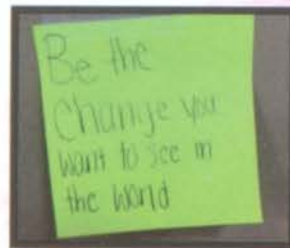 Be the
Change you
want to see in
the world